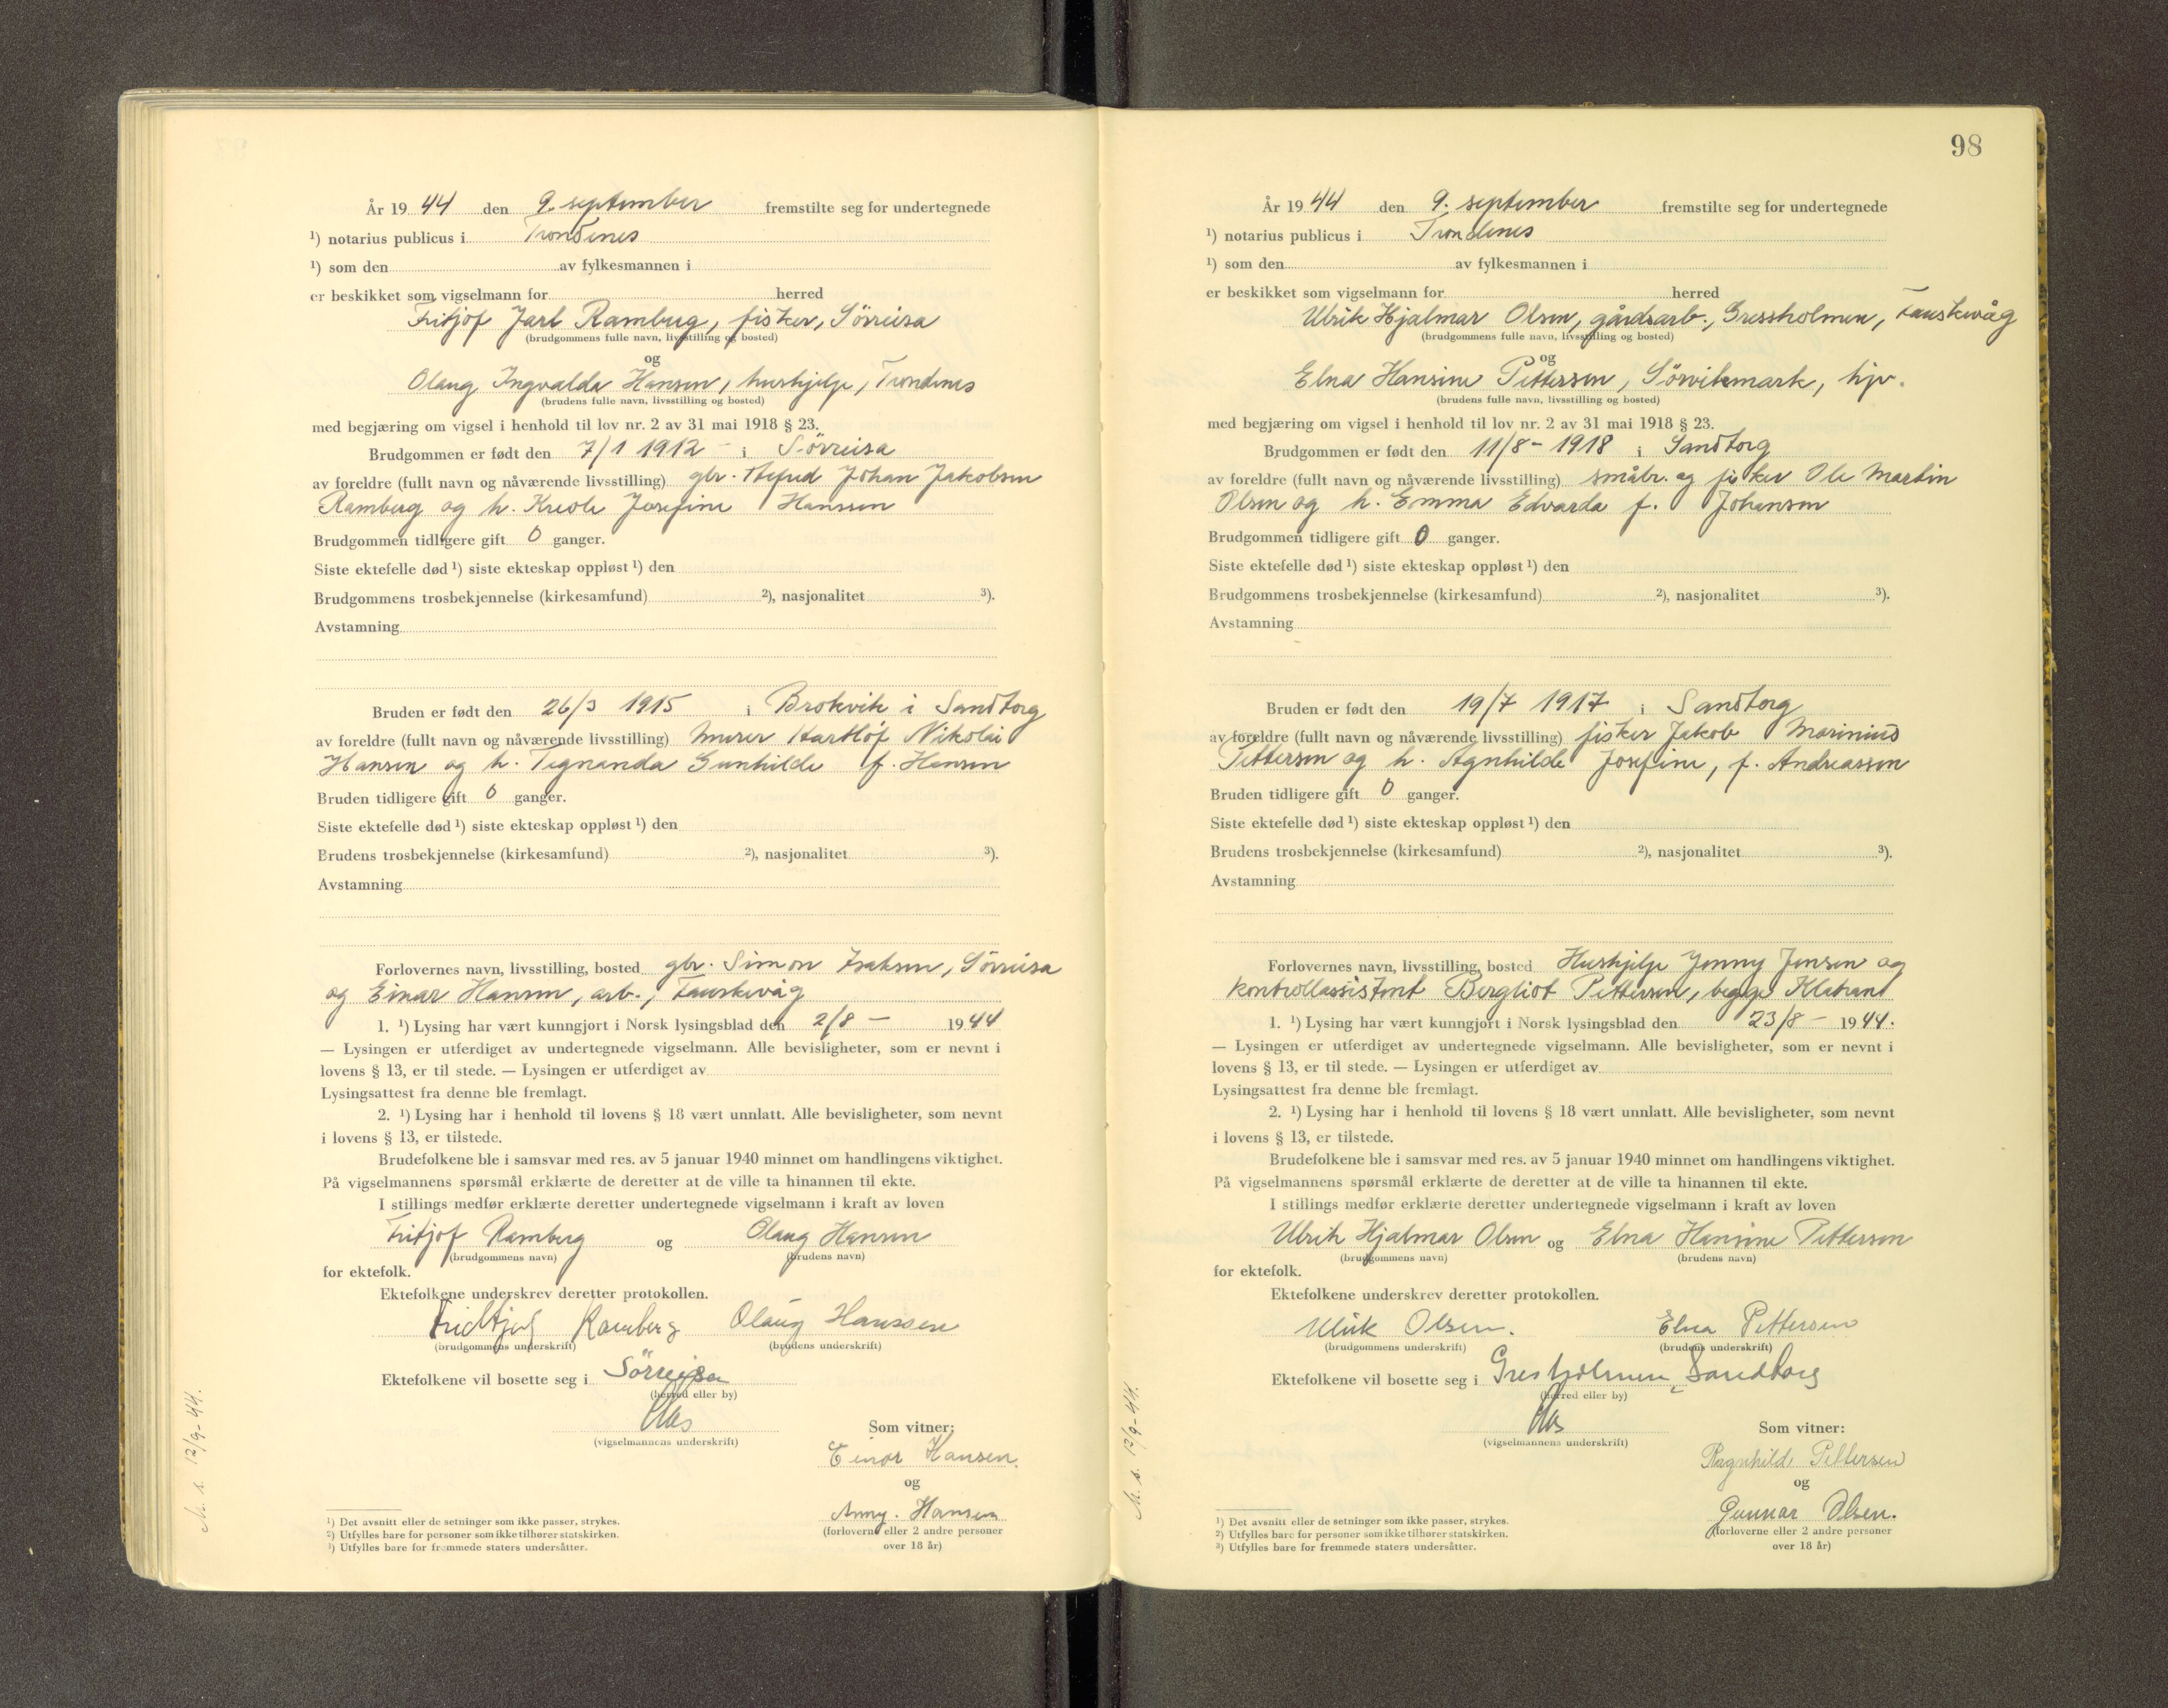 År 1944 den 9. september fremstilte seg for undertegnede
¹) notarius publicus i Trondenes
¹) som den av fylkesmannen i
er beskikket som vigselmann for herred
Fritjof Jarl Ramberg, fisker, Sörreisa
(brudgommens fulle navn, livsstilling og bosted)
og
Olaug Ingvalda Hansen, hushjelp, Trondenes
(brudens fulle navn, livsstilling og bosted)
med begjæring om vigsel i henhold til lov nr. 2 av 31 mai 1918 § 23.
Brudgommen er født den 7/1 1912 – i Sörreisa
av foreldre (fullt navn og nåværende livsstilling) gbr. Johan Jakobsen
Ramberg og h. Josefine Hanssen
Brudgommen tidligere gift 0 ganger.
Siste ektefelle død ¹) siste ekteskap oppløst ¹) den
Brudgommens trosbekjennelse (kirkesamfund) ²), nasjonalitet ³).
Avstamning
Bruden er født den 26/3 1915 i Brokvik i Sandtorg
av foreldre (fullt navn og nåværende livsstilling) murer Hartlof Nikolai
Hansen og h. Gunhilde f. Hansen
Bruden tidligere gift 0 ganger.
Siste ektefelle død ¹) siste ekteskap oppløst ¹) den
Brudens trosbekjennelse (kirkesamfund) ²), nasjonalitet ³).
Avstamning
Forlovernes navn, livsstilling, bosted gbr. Simon Isaksen, Sörreisa
og Einar Hansen, arb., Fauskevåg
1. ¹) Lysing har vært kunngjort i Norsk lysingsblad den 2/8 – 1944
— Lysingen er utferdiget av undertegnede vigselmann. Alle bevisligheter, som er nevnt i
lovens § 13, er til stede. — Lysingen er utferdiget av
Lysingsattest fra denne ble fremlagt.
2. ¹) Lysing har i henhold til lovens § 18 vært unnlatt. Alle bevisligheter, som nevnt
i lovens § 13, er tilstede.
Brudefolkene ble i samsvar med res. av 5 januar 1940 minnet om handlingens viktighet.
På vigselmannens spørsmål erklærte de deretter at de ville ta hinannen til ekte.
I stillings medfør erklærte deretter undertegnede vigselmann i kraft av loven
Fritjof Ramberg og Olaug Hansen
(brudgommens navn) (brudens navn)
for ektefolk.
Ektefolkene underskrev deretter protokollen.
Fridtjof Ramberg Olaug Hanssen
(brudgommens underskrift) (brudens underskrift)
Ektefolkene vil bosette seg i Sörreisa
(herred eller by)
(vigselmannens underskrift)
Som vitner:
Einar Hansen.
og
Anny. Hansen
(forloverne eller 2 andre personer
over 18 år)
¹) Det avsnitt eller de setninger som ikke passer, strykes.
²) Utfylles bare for personer som ikke tilhører statskirken.
³) Utfylles bare for fremmede staters undersåtter.
M. s. 12/9-44.
98
År 1944 den 9. september fremstilte seg for undertegnede
¹) notarius publicus i Trondenes
¹) som den av fylkesmannen i
er beskikket som vigselmann for herred
Ulrik Hjalmar Olsen, gårdsarb., Gressholmen, Fauskevåg
(brudgommens fulle navn, livsstilling og bosted)
og
Elna Hansine Pettersen, Sörvikmark, hjv.
(brudens fulle navn, livsstilling og bosted)
med begjæring om vigsel i henhold til lov nr. 2 av 31 mai 1918 § 23.
Brudgommen er født den 11/8 – 1918 i Sandtorg
av foreldre (fullt navn og nåværende livsstilling) småbr. og fisker Ole Martin
Olsen og h. Emma Edvarda f. Johansen
Brudgommen tidligere gift 0 ganger.
Siste ektefelle død ¹) siste ekteskap oppløst ¹) den
Brudgommens trosbekjennelse (kirkesamfund) ²), nasjonalitet ³).
Avstamning
Bruden er født den 19/7 1917 i Sandtorg
av foreldre (fullt navn og nåværende livsstilling) fisker Jakob Marinius
Pettersen og h. Agnhilde Josefine, f. Andreassen
Bruden tidligere gift 0 ganger.
Siste ektefelle død ¹) siste ekteskap oppløst ¹) den
Brudens trosbekjennelse (kirkesamfund) ²), nasjonalitet ³).
Avstamning
Forlovernes navn, livsstilling, bosted Hushjelp Jenny Jensen og
kontrollassistent Bergliot Pettersen, begge
1. ¹) Lysing har vært kunngjort i Norsk lysingsblad den 23/8 – 1944.
— Lysingen er utferdiget av undertegnede vigselmann. Alle bevisligheter, som er nevnt i
lovens § 13, er til stede. — Lysingen er utferdiget av
Lysingsattest fra denne ble fremlagt.
2. ¹) Lysing har i henhold til lovens § 18 vært unnlatt. Alle bevisligheter, som nevnt
i lovens § 13, er tilstede.
Brudefolkene ble i samsvar med res. av 5 januar 1940 minnet om handlingens viktighet.
På vigselmannens spørsmål erklærte de deretter at de ville ta hinannen til ekte.
I stillings medfør erklærte deretter undertegnede vigselmann i kraft av loven
Ulrik Hjalmar Olsen og Elna Hansine Pettersen
(brudgommens navn) (brudens navn)
for ektefolk.
Ektefolkene underskrev deretter protokollen.
Ulrik Olsen. Elna Pettersen
(brudgommens underskrift) (brudens underskrift)
Ektefolkene vil bosette seg i Gresholmen, Sandtorg
(herred eller by)
(vigselmannens underskrift)
Som vitner:
Ragnhild Pettersen
og
Gunnar Olsen.
(forloverne eller 2 andre personer
over 18 år)
¹) Det avsnitt eller de setninger som ikke passer, strykes.
²) Utfylles bare for personer som ikke tilhører statskirken.
³) Utfylles bare for fremmede staters undersåtter.
M. s. 12/9-44.